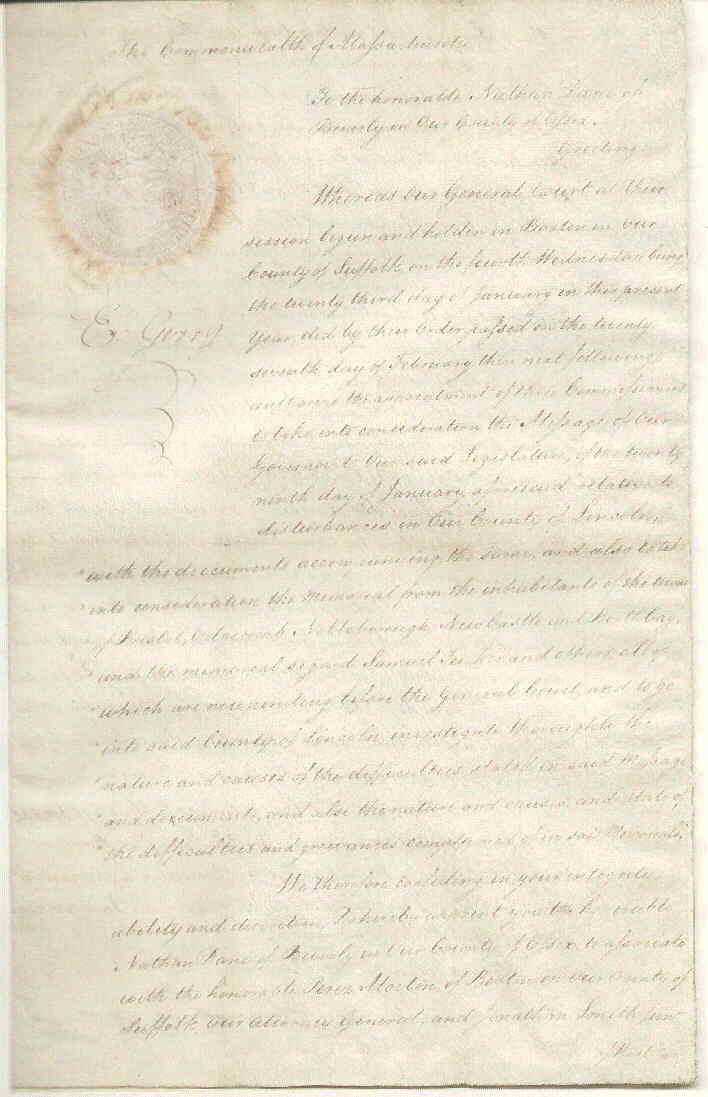 The Commonwealth of Massachusetts
To the honorable Nathan Dane of
Beverly in Our County of Essex.
Greeting
Whereas Our General Court at their
session begun and holden in Boston in our
County of Suffolk on the fourth Wednesday being
the twenty third day of January in this present
E. Gerry
Year, did by their Order, passed on the twenty
seventh day of February then next following
authorize the appointment of three Commissioners
to take into consideration the Message of Our
Governor to Our said Legislature, of the twenty
ninth day of January aforesaid relative to
disturbances in Our County of Lincoln,
"with the documents accompanying the same, and also to take
"into consideration the memorial from the inhabitants of the towns
"of Bristol, Edgcomb, Nobleborough, New Castle and Boothbay,
"and the memorial signed Samuel Tucker and others all of
"which are now pending before the General Court, and to go
"into said County of Lincoln, investigate thoroughly the
"nature and causes of the difficulties stated in said Message
"and documents, and also the nature and causes, and state of
"the difficulties and grievances complained of in said Memorials."
We therefore confiding in your integrity,
ability and discretion, Do hereby appoint you the honorable
Nathan Dane of Beverly in Our County of Essex to associate
with the honorable Perez Morton, of Boston in Our County of
Suffolk Our Attorney General, and Jonathan Smith junr